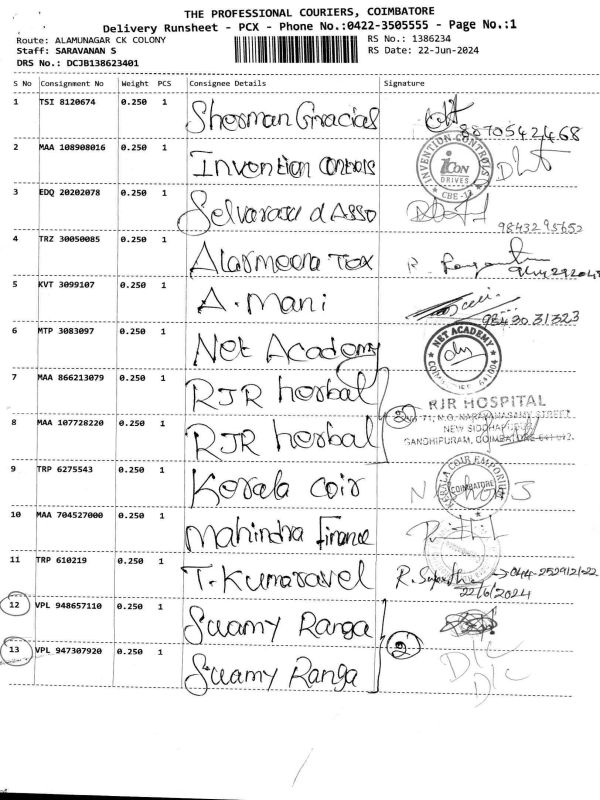 THE PROFESSIONAL COURIERS, COIMBATORE
Delivery Runsheet - PCX - Phone No.:0422-3505555 - Page No.:1
Route: ALAMUNAGAR CK COLONY RS No.: 1386234
Staff: SARAVANAN S RS Date: 22-Jun-2024
DRS No.: DCJB138623401
S No Consignment No Weight PCS Consignee Details Signature
1 TSI 8120674 0.250 1 Sherman Gracias
8870542468
2 MAA 108908016 0.250 1 Invention Controls INVENTION CONTROLS iCON DRIVES CBE-12
3 EDQ 20202078 0.250 1 Selvarasu d Asso
9843295652
4 TRZ 30050085 0.250 1 Alarmeena Tex
5 KVT 3099107 0.250 1 A. Mani
98430 31323
6 MTP 3083097 0.250 1 Net Academy NET ACADEMY
7 MAA 866213079 0.250 1 RJR herbal 2 RJR HOSPITAL
71, N.G. NARAYANASAMY STREET
NEW SIDDHAPUDUR
8 MAA 107728220 0.250 1 RJR herbal GANDHIPURAM, COIMBATORE-641 012.
9 TRP 6275543 0.250 1 Kerala coir KERALA COIR EMPORIUM COIMBATORE
10 MAA 704527000 0.250 1 Mahindra Finance
11 TRP 610219 0.250 1 T. Kumaravel 044-25291222
22/6/2024
12 VPL 948657110 0.250 1 Swamy Ranga
2
13 VPL 947307920 0.250 1 Swamy Ranga D/C
D/C